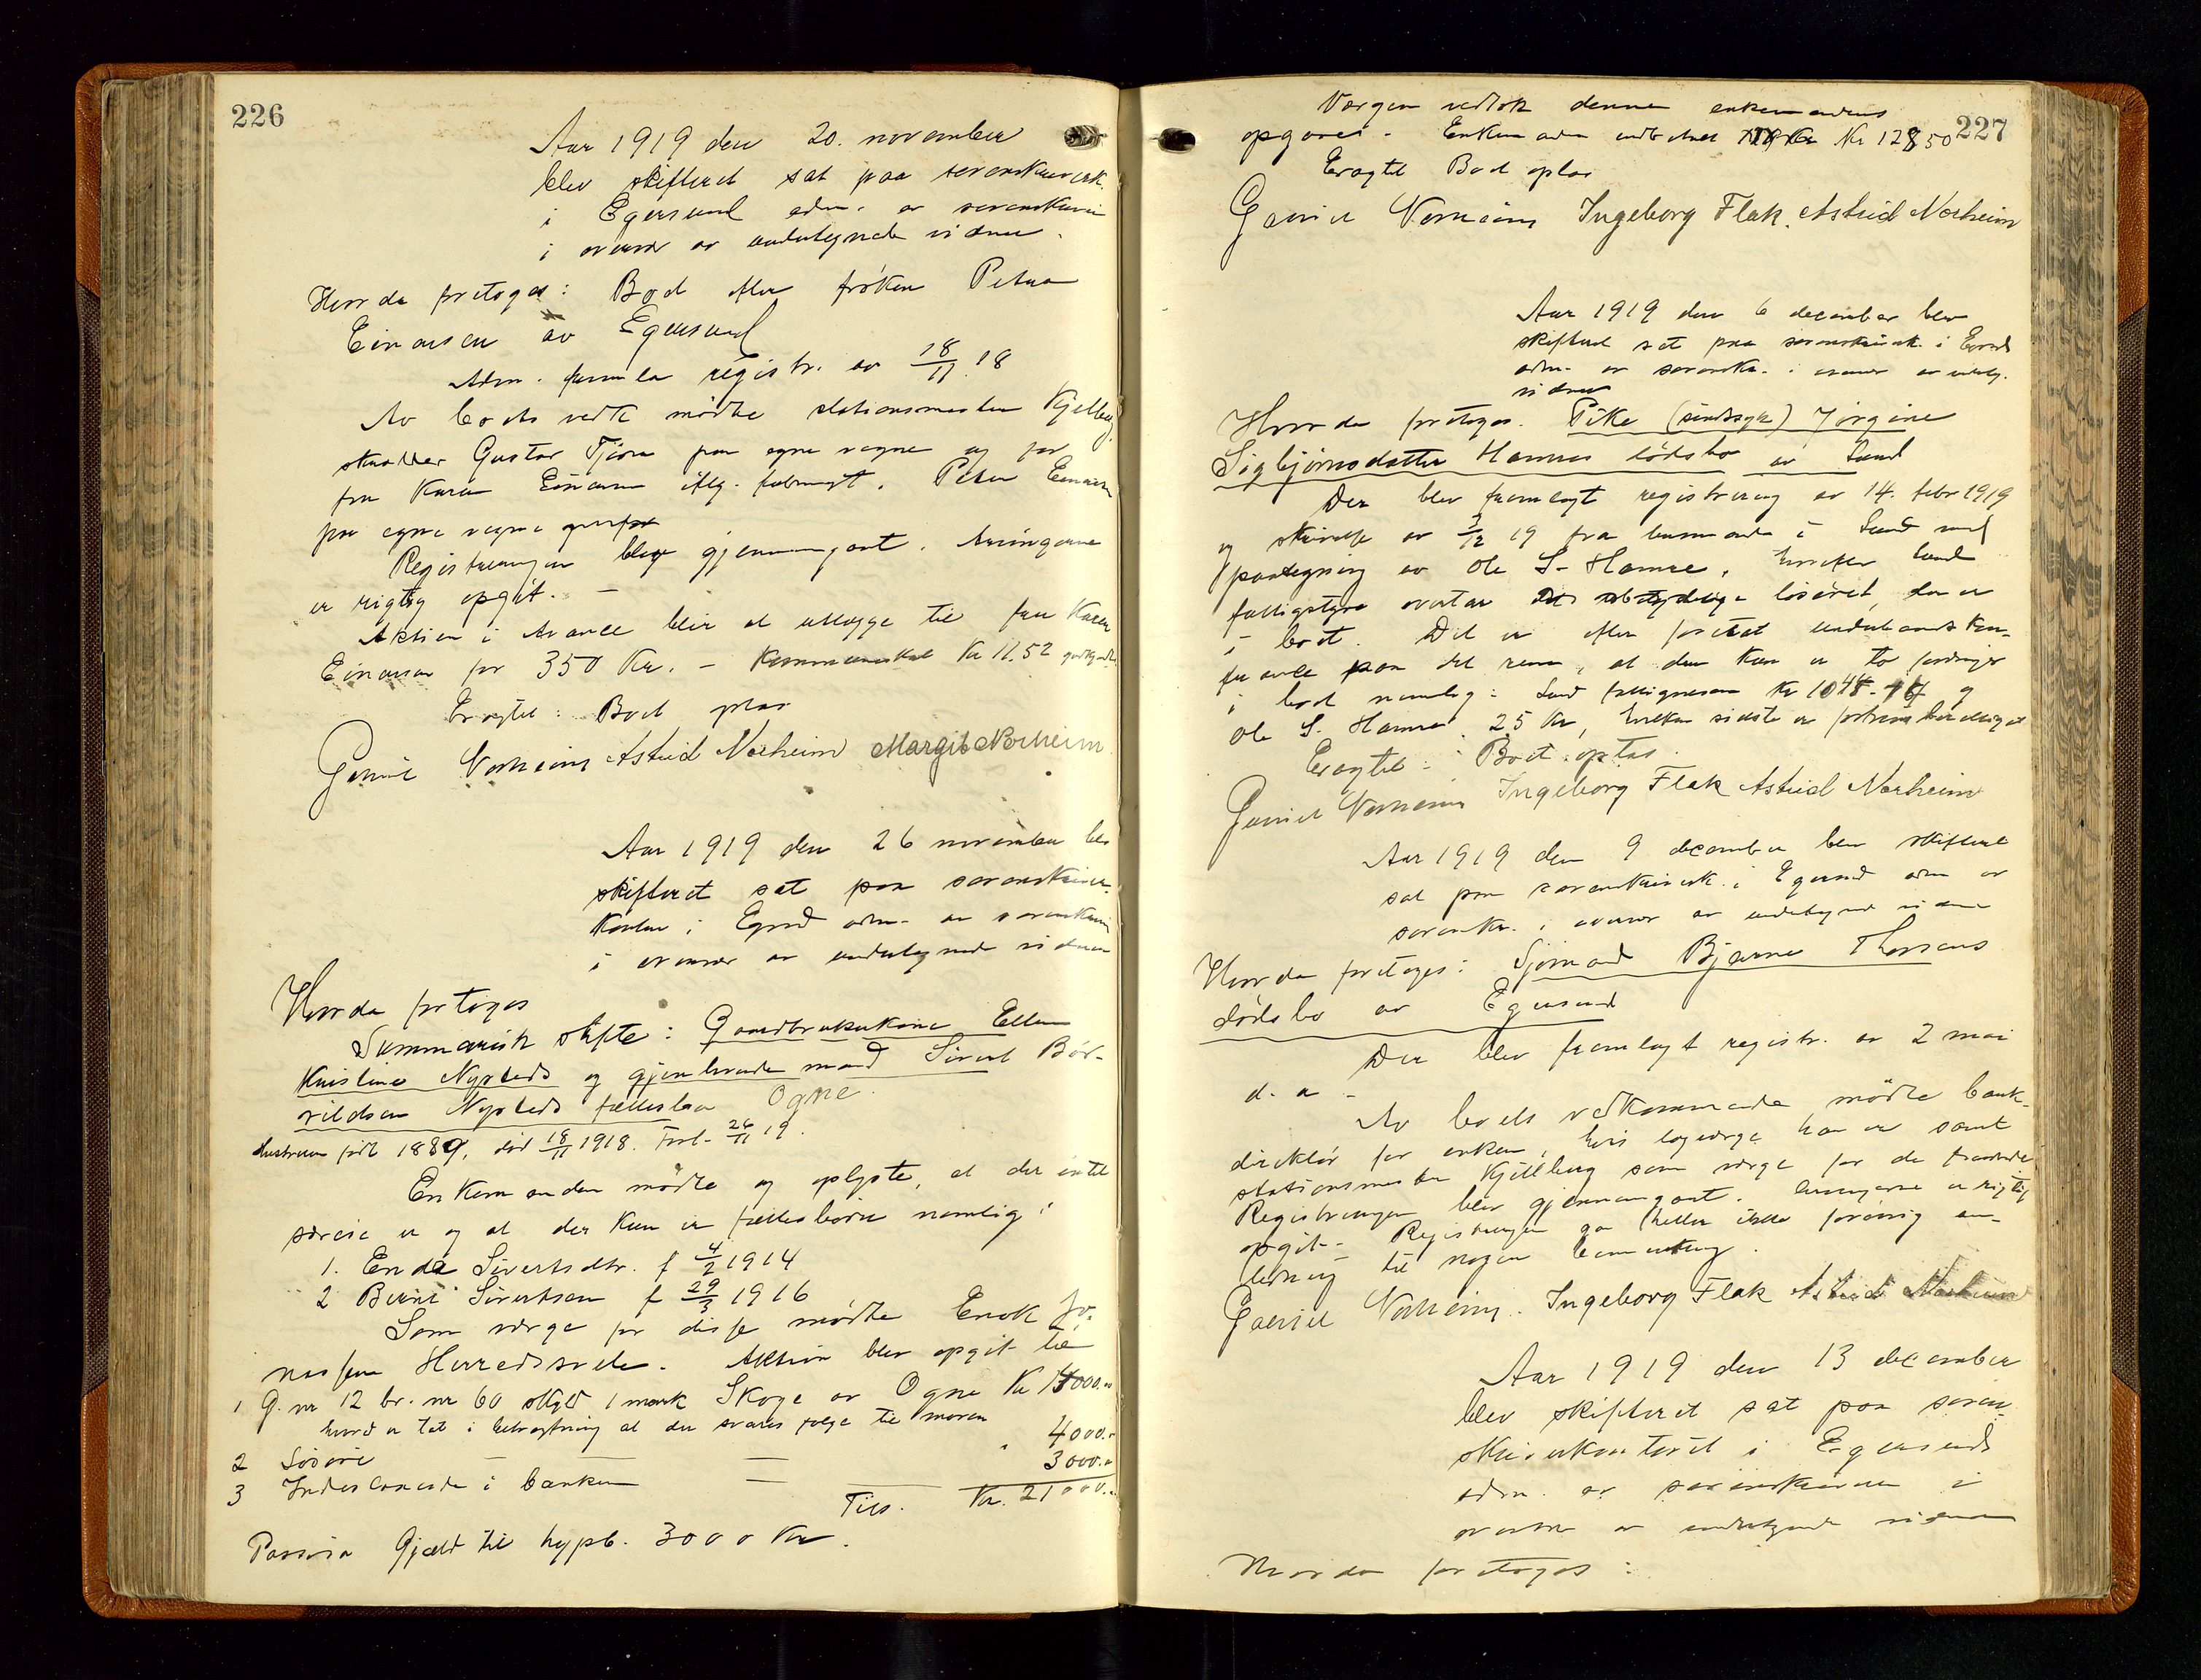 226
Aar 1919 den 20. november
blev skifteret sat paa sorenskriverk.
i Egersund adm. av sorenskriver
i overvær av undertegnede vidner.
Hvor da foretoges: Bod efter frøken Petra
Einarsen av Egersund
Adm. fremla registr. av 18/11 18
Av boets vedk mødte stationsmester Kjelberg,
Gustav Tjörn paa egne vegne og for
fru Karen Einarsen iflg. fuldmagt. Peter Einarsen
paa egne vegne
Registreringen blev gjennemgaat. Arvingerne
er rigtig opgit. -
Aktien i Avance blir at utlægge til fru Karen
Einarsen for 350 Kr. - Kommuneskat Kr 11.52
Eragtet: Bod optas
Gabriel Norheim Astrid Norheim Margit Norheim
Aar 1919 den 26 november blev
skifteret sat paa sorenskriver-
kontor i Egersd adm. av sorenskriver
i overvær av undertegnede vidner
Hvor da foretoges
Summarisk skifte: Gaardbrukerkone Ellen
Kristine Nysteds og gjenlevende mand Sivert Bör-
rildsen Nysteds fællesbo Ogne.
Hustruen født 1889, död 18/11 1918. Forl. 26/11 19.
Enkemanden mødte og oplyste, at der intet
særeie er og at der kun er fællesbørn nemlig:
1. Enda Sivertsdtr. f 4/2 1914
2 Berni Sivertsen f 29/3 1916
Som værge for disse mødte Enok Jo-
nassen Herredsvela. Aktiva blev opgit til
1 G. nr 12 br. nr 60 skyld 1 mark Skoge av Ogne Kr 14000.00
hvord er tat i betragtning at der svares følge til moren
2 Løsöre — — " 4000.-
3 Indestaaende i banken — 3000.-
Tils. Kr. 21000.-
Passiva Gjæld til hypb. 3000 Kr.
227
Værgen vedtok denne enkemandens
opgave. Enkemanden indbetalte Kr 128,50
Eragtet Bod optas
Gabriel Norheim Ingeborg Flak. Astrid Norheim
Aar 1919 den 6 december blev
skifteret sat paa sorenskriverk. i Egersd
adm. av sorenskr. i overvær av underteg.
vidner
Hvor da foretoges. Pike (sindssyk) Jørgine
Sigbjørnsdatter Hamres dödsbo av Sand
Der blev fremlagt registrering av 14. febr 1919
og skrivelse av 3/12 19 fra lensmanden i Sand med
paategning av Ole S. Hamre, hvorefter Sand
fattigstyre overtar det ubetydelige løsøret, der er
i boet. Det er efter foretat
paa det rene, at der kun er to fordringer
i boet nemlig: Sand fattigvæsen Kr 1048- og
Ole S. Hamre 25 Kr, hvilken sidste er fortrinsberettiget
Eragtet: Boet optas.
Gabriel Norheim Ingeborg Flak Astrid Norheim
Aar 1919 den 9 december blev skifteret
sat paa sorenskriverk. i Egersund adm av
sorenskr. i overvær av undertegnede vidner
Hvor da foretoges: Sjømand Bjarne Thorsens
dödsbo av Egersund
Der blev fremlagt registr. av 2 mai
d. a. -
Av boets vedkommende mødte bank-
direktör for enken, hvis lagværge han er samt
stationsmester Kjellberg som værge for de fraværende
Registreringen blev gjennemgaat. Arvingerne er rigtig
opgit. Registreringen ga heller ikke forøvrig an-
ledning til nogen bemerkning.
Gabriel Norheim. Ingeborg Flak Astrid Norheim
Aar 1919 den 13 december
blev skifteret sat paa soren-
skriverkontoret i Egersund
adm. av sorenskriveren i
overvær av undertegnede vidner
Hvor da foretoges: